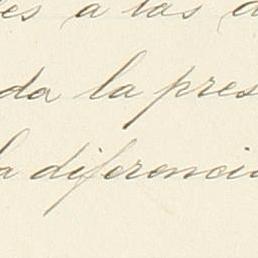 es a las
da la pres
a diferencia